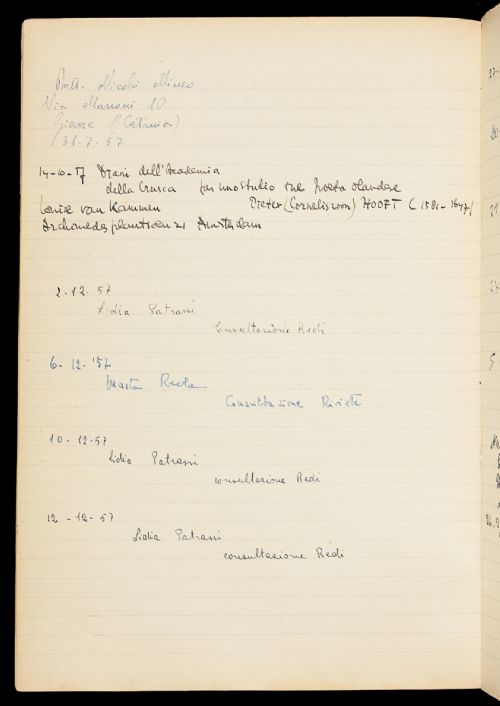 Dott. Nicolò Mineo
Via Marconi 10
Giarre (Catania)
31.7.57
14-10-57 Diari dell'Accademia
della Crusca per uno studio sul Poeta olandese
Louise van Kammen Pieter (Corneliszoon) HOOFT (1581-1647)
Archimedesplantsoen 21 Amsterdam
2-12. 57
Lidia Patrassi
Consultazione Redi
6. 12. '57
Marta
Consultazione Riviste
10. 12-57
Lidia Patrassi
consultazione Redi
12 - 12. 57
Lidia Patrassi
consultazione Redi